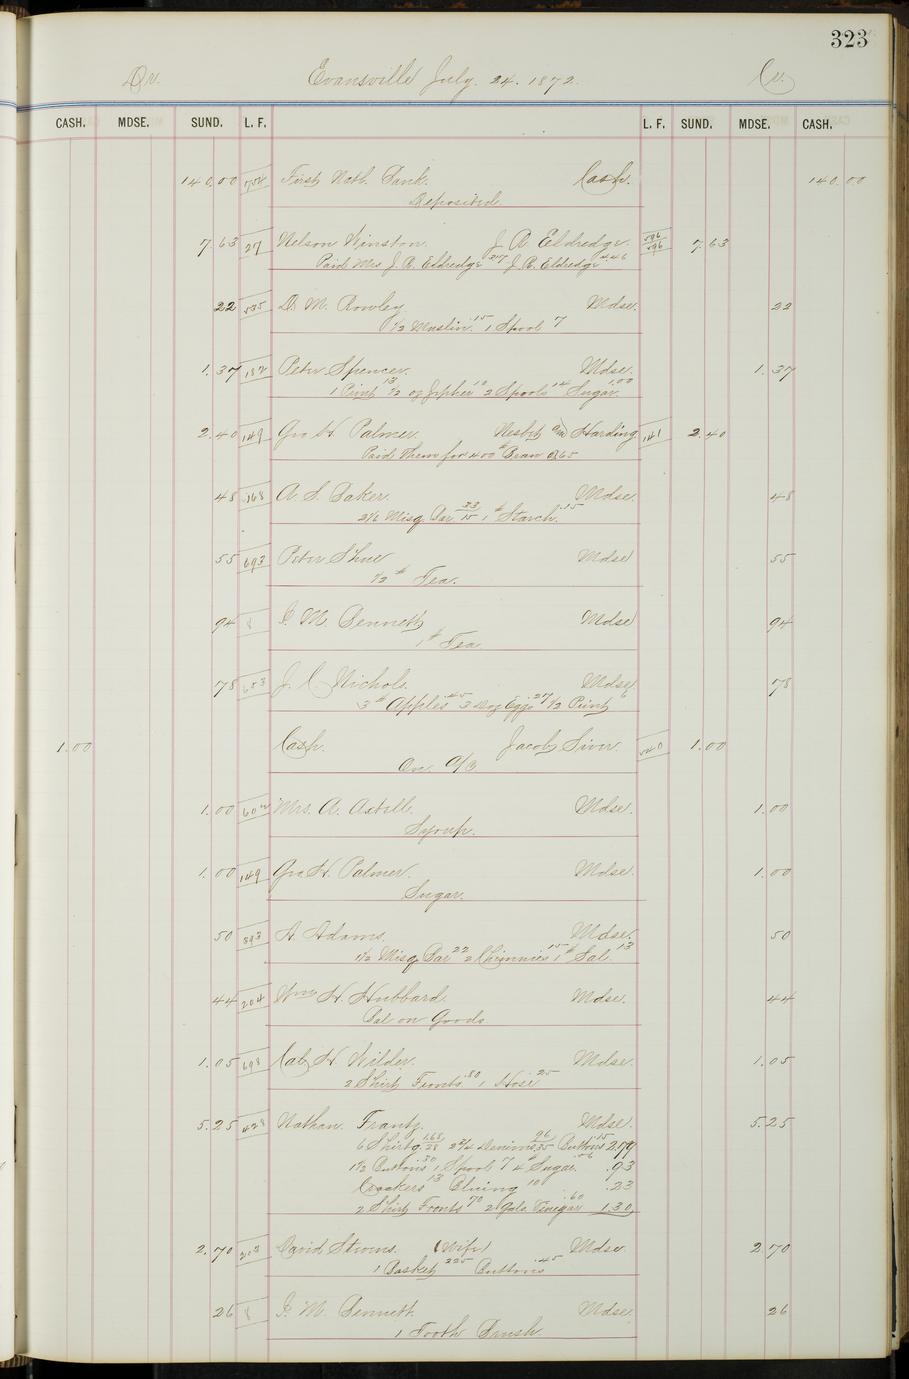 323
Dr. Evansville July. 24. 1872. Cr.
CASH. MDSE. SUND. L. F. L. F. SUND. MDSE. CASH.
140.00 First Natl. Bank. Cash. 140.00
Deposited
7.63 27 Nelson Winston. J. R. Eldredge. 7.63
Paid Mrs J. R. Eldredge J. R. Eldredge
22 535 D. M. Rowley Mdse. 22
1½ Muslin .15 1 Spool 7
1.37 187 Peter Spencer. Mdse. 1.37
1 Print 13 ½ oz Zepher 10 2 Spools 14 Sugar. 1.00
2.40 149 Geo H. Palmer. Nesbit and Harding 141 2.40
Paid Them for 400 # Bran
48 168 A. S. Baker. Mdse. 48
2⅙ Misq Bar 33/15 1 # Starch. .15
55 693 Peter Shue Mdse 55
½ # Tea.
94 8 I. M. Bennett Mdse 94
1 # Tea
78 653 J. C. Nichols. Mdse. 78
3 # Apples 45 3 Doz Eggs 27 ½ Print 6
1.00 Cash. Jacob Siver. 540 1.00
On a/c
1.00 602 Mrs. A. Axtell. Mdse. 1.00
Syrup.
1.00 149 Geo H. Palmer. Mdse. 1.00
Sugar.
50 393 A. Adams. Mdse. 50
1½ Misq Bar 22 2 Chimnies 15 1 # Sal. 13
44 204 Wm H. Hubbard. Mdse. 44
Bal on Goods
1.05 698 Cal H. Wilder. Mdse. 1.05
2 Shirt Fronts .80 1 Hose 25
5.25 428 Nathan Frantz. Mdse. 5.25
6 Shirtg. 1.68/28 2¾ Denims 96/35 Buttons .15 2.79
1½ Buttons .30 1 Spool 7 4 # Sugar. .56 .93
Crackers 13 Bluing 10 .23
2 Shirt Fronts 70 2 Gals. Vinegar .60 1.30
2.70 203 David Stevens. (Wife) Mdse. 2.70
1 Basket 225 Buttons .45
26 8 I. M. Bennett. Mdse. 26
1 Tooth Brush.